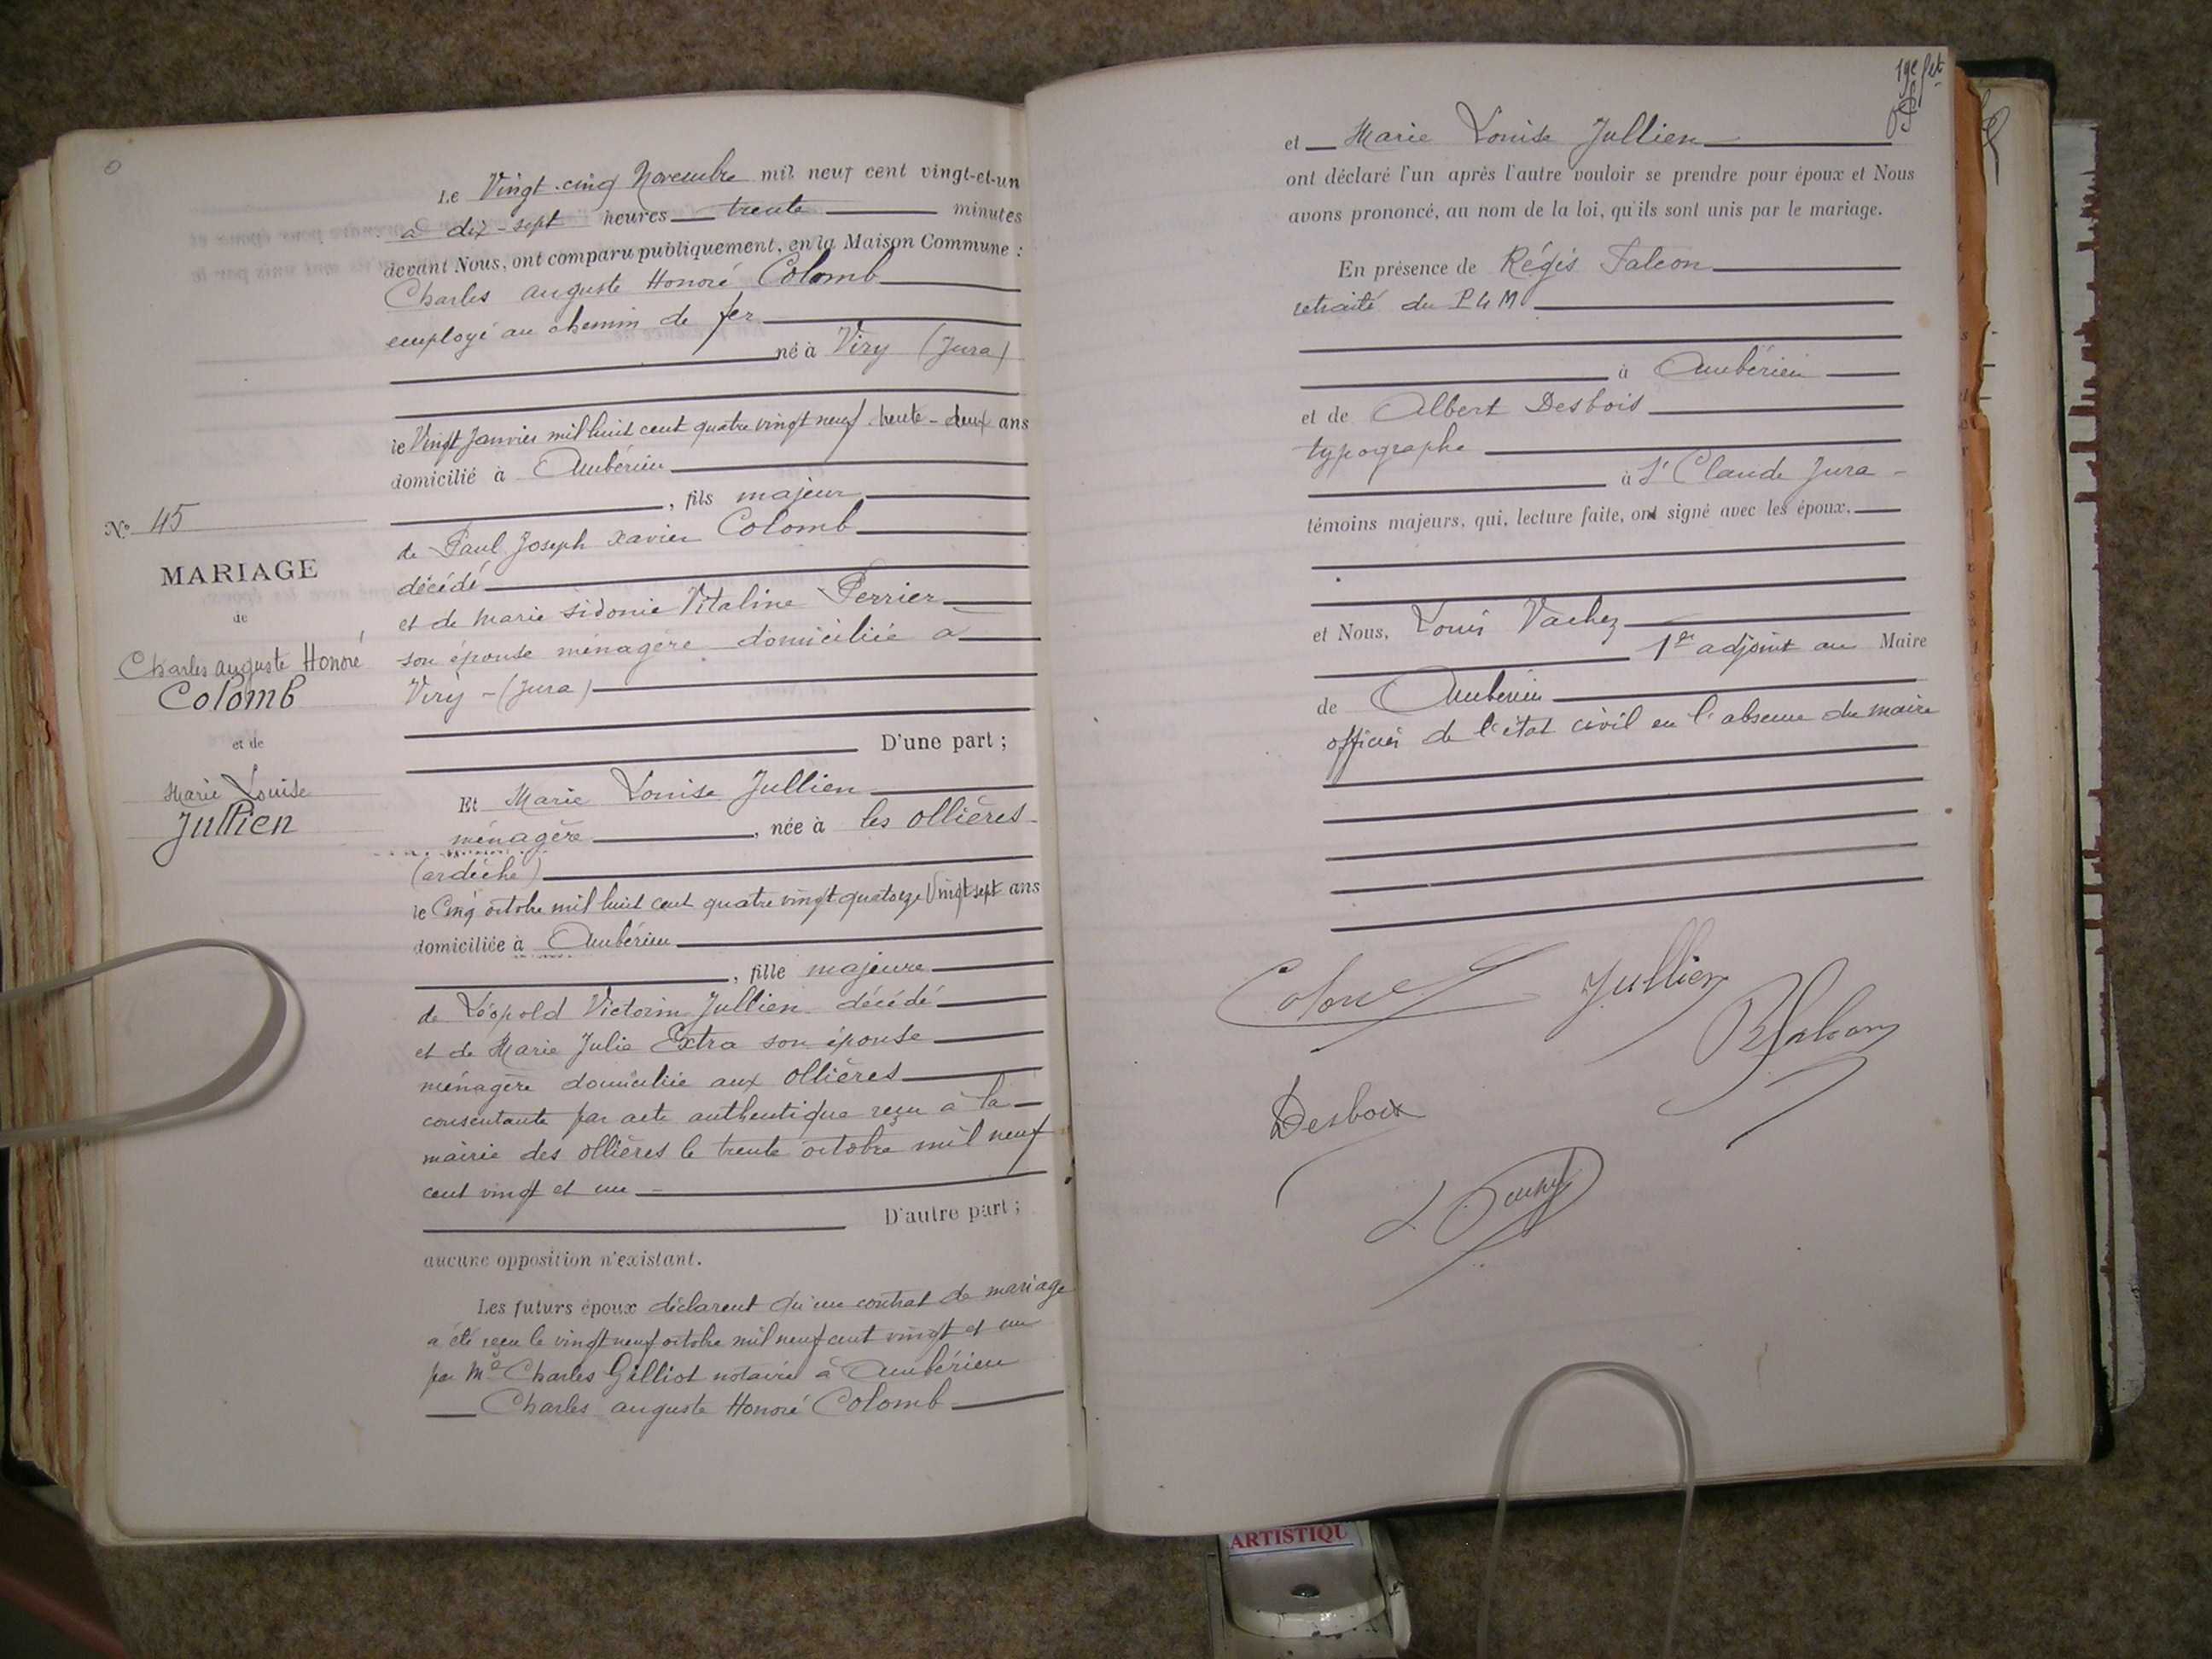 N° 45
MARIAGE
de
Charles auguste Honoré
Colomb
et de
Marie Louise
Jullien
Le Vingt-cinq Novembre mil neuf cent vingt-et-un
à dix-sept heures trente minutes
devant Nous, ont comparu publiquement, en la Maison Commune :
Charles auguste Honoré Colomb
employé au chemin de fer
né à Viry (Jura)
le Vingt Janvier mil huit cent quatre vingt neuf trente-deux ans
domicilié à Ambérieu
, fils majeur
de Paul Joseph Xavier Colomb
décédé
et de marie sidonie Vitaline Perrier
son épouse ménagère domiciliée à
Viry - (Jura)
D'une part ;
Et Marie Louise Jullien
ménagère , née à les ollières
(ardèche)
le Cinq octobre mil huit cent quatre vingt quatorze Vingt sept ans
domiciliée à Ambérieu
, fille majeure
de Léopold Victorin Jullien décédé
et de Marie Julie Extra son épouse
ménagère domiciliée aux ollières
consentante par acte authentique reçu à la
mairie des ollières le trente octobre mil neuf
cent vingt et un
D'autre part ;
aucune opposition n'existant.
Les futurs époux déclarent qu'un contrat de mariage
a été reçu le vingt neuf octobre mil neuf cent vingt et un
par Me Charles Gilliot notaire à Ambérieu
Charles auguste Honoré Colomb
et Marie Louise Jullien
ont déclaré l'un après l'autre vouloir se prendre pour époux et Nous
avons prononcé, au nom de la loi, qu'ils sont unis par le mariage.
En présence de Régis Falcon
retraité du PLM
à Ambérieu
et de Albert Desbois
typographe
à St Claude Jura
témoins majeurs, qui, lecture faite, ont signé avec les époux,
et Nous, Louis Vachez
1er adjoint au Maire
de Ambérieu
officier de l'état civil en l'absence du maire
Colomb
Jullien
R Falcon
Desbois
ARTISTIQU